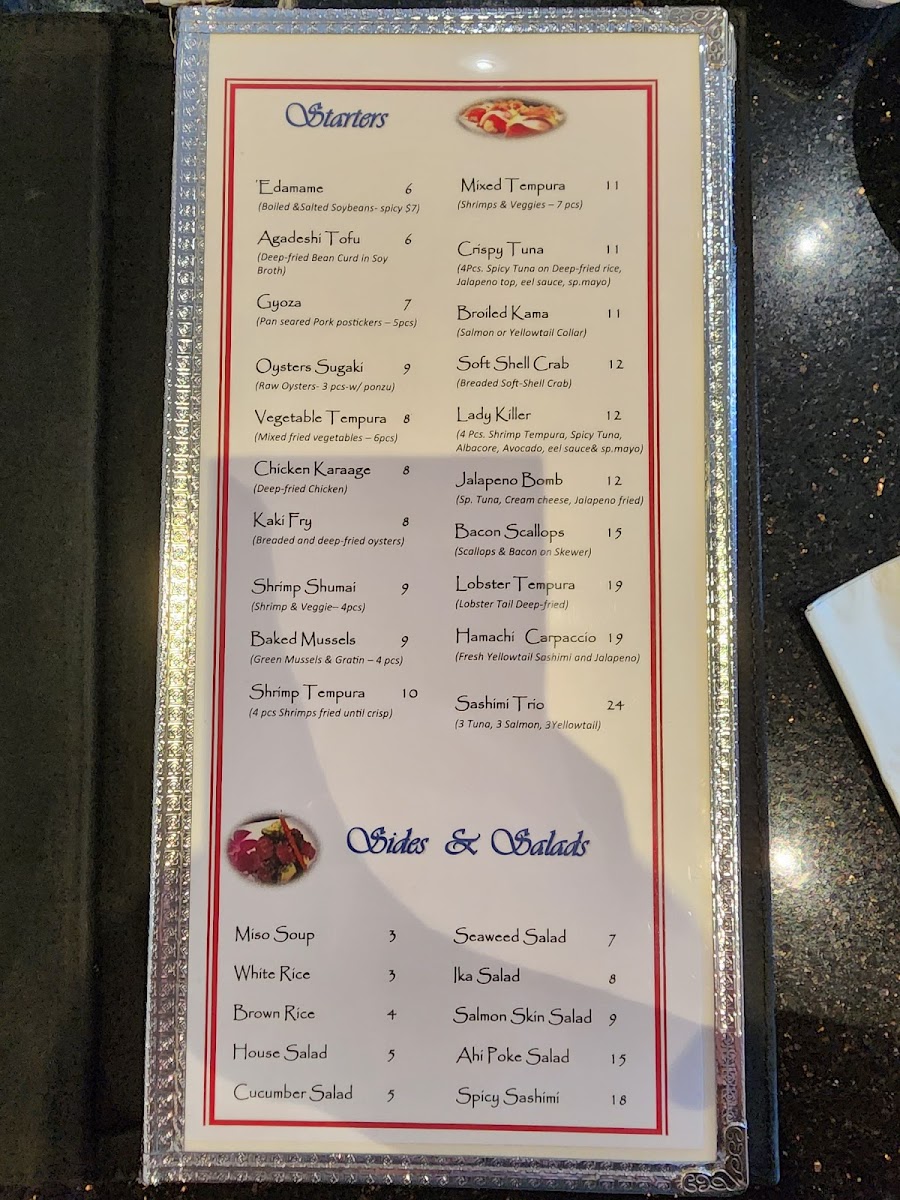 Starters
Edamame 6
(Boiled &Salted Soybeans- spicy $7)
Agadeshi Tofu 6
(Deep-fried Bean Curd in Soy
Broth)
Gyoza 7
(Pan seared Pork postickers – 5pcs)
Oysters Sugaki 9
(Raw Oysters- 3 pcs-w/ ponzu)
Vegetable Tempura 8
(Mixed fried vegetables – 6pcs)
Chicken Karaage 8
(Deep-fried Chicken)
Kaki Fry 8
(Breaded and deep-fried oysters)
Shrimp Shumai 9
(Shrimp & Veggie– 4pcs)
Baked Mussels 9
(Green Mussels & Gratin – 4 pcs)
Shrimp Tempura 10
(4 pcs Shrimps fried until crisp)
Mixed Tempura 11
(Shrimps & Veggies – 7 pcs)
Crispy Tuna 11
(4Pcs. Spicy Tuna on Deep-fried rice,
Jalapeno top, eel sauce, sp.mayo)
Broiled Kama 11
(Salmon or Yellowtail Collar)
Soft Shell Crab 12
(Breaded Soft-Shell Crab)
Lady Killer 12
(4 Pcs. Shrimp Tempura, Spicy Tuna,
Albacore, Avocado, eel sauce& sp.mayo)
Jalapeno Bomb 12
(Sp. Tuna, Cream cheese, Jalapeno fried)
Bacon Scallops 15
(Scallops & Bacon on Skewer)
Lobster Tempura 19
(Lobster Tail Deep-fried)
Hamachi Carpaccio 19
(Fresh Yellowtail Sashimi and Jalapeno)
Sashimi Trio 24
(3 Tuna, 3 Salmon, 3Yellowtail)
Sides & Salads
Miso Soup 3
White Rice 3
Brown Rice 4
House Salad 5
Cucumber Salad 5
Seaweed Salad 7
Ika Salad 8
Salmon Skin Salad 9
Ahi Poke Salad 15
Spicy Sashimi 18